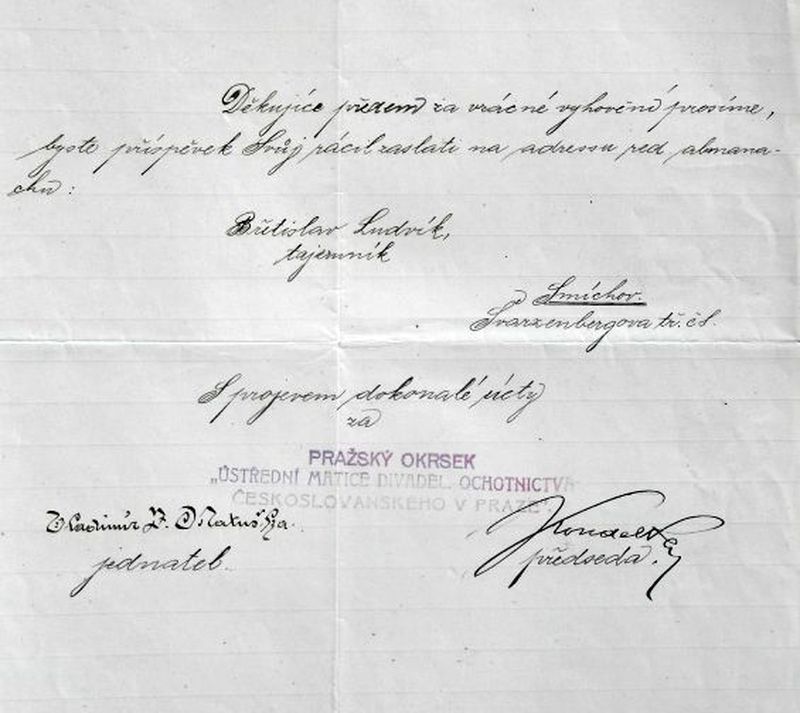 Děkujíce předem za vzácné vyhovění prosíme,
byste příspěvek Svůj ráčil zaslati na adressu red almana-
chu:
Břetislav Ludvík,
tajemník
Smíchov.
Švarzenbergova tř. čs.
S projevem dokonalé úcty
za
PRAŽSKÝ OKRSEK
„ÚSTŘEDNÍ MATICE DIVADEL. OCHOTNICTVA
ČESKOSLOVANSKÉHO V PRAZE“.
Vladimír P. Matuška.
jednatel.
předseda.